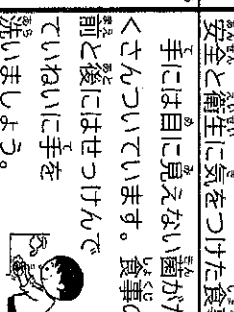 安全と衛生に気をつけた食事
手には目に見えない菌がた
くさんついています。食事の
前と後にはせっけんで
ていねいに手を
洗いましょう。